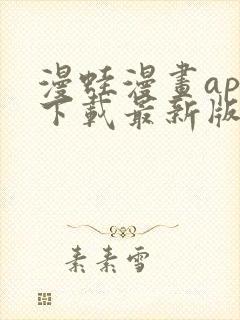 漫蛙漫畫ap
下載最新版
素素雪